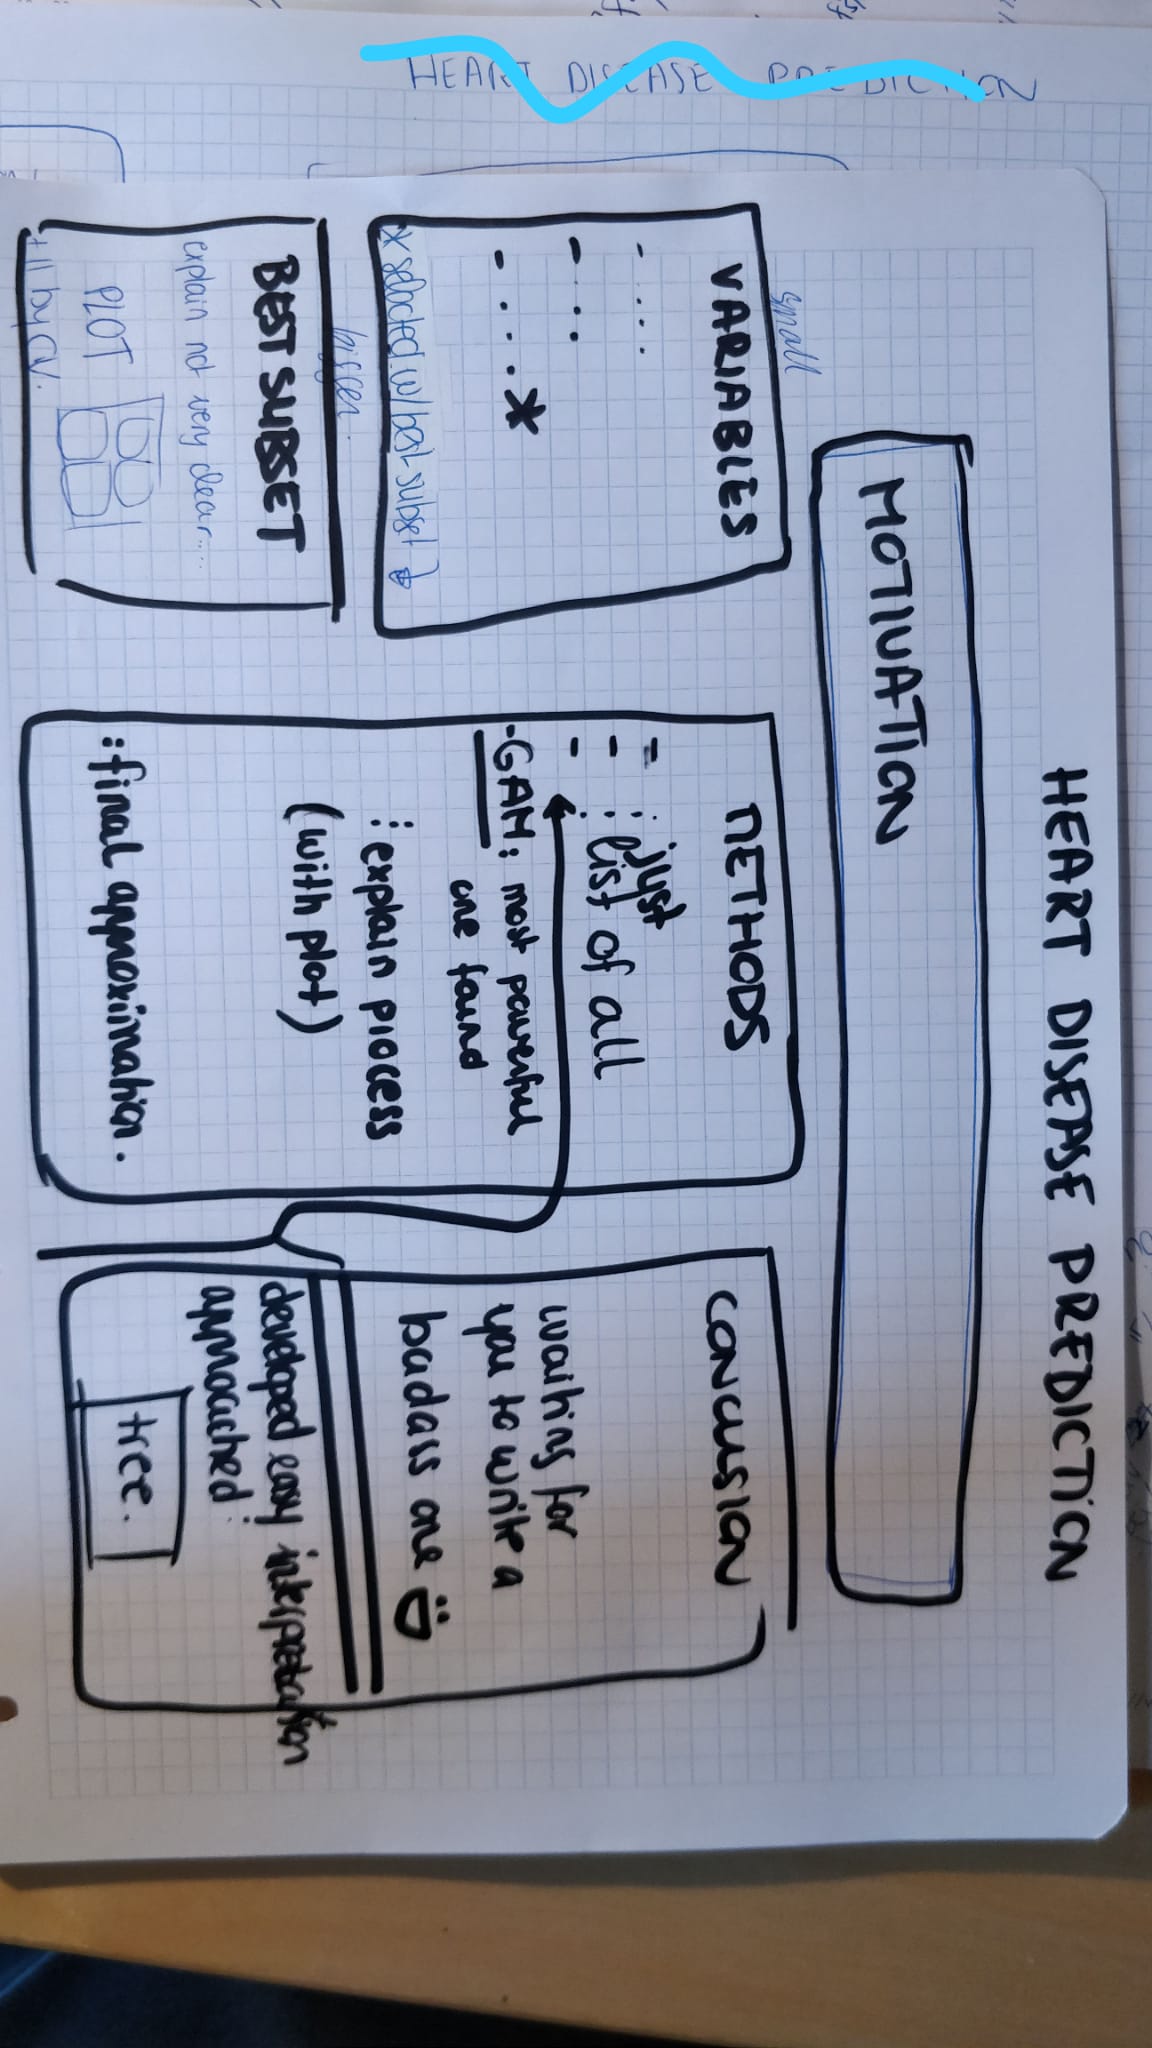 HEART DISEASE PREDICTION
MOTIVATION
small
VARIABLES
- ....
- ...
- ....*
* selected w/ best subset
bigger.
BEST SUBSET
explain not very clear....
PLOT
by CV.
METHODS
- : just
- : list of all
- :
-GAM: most powerful
one found
: explain process
(with plot)
: final approximation.
CONCLUSION
waiting for
you to write a
badass one
developed easy interpretation
approached:
tree.
HEART DISEASE PREDICTION